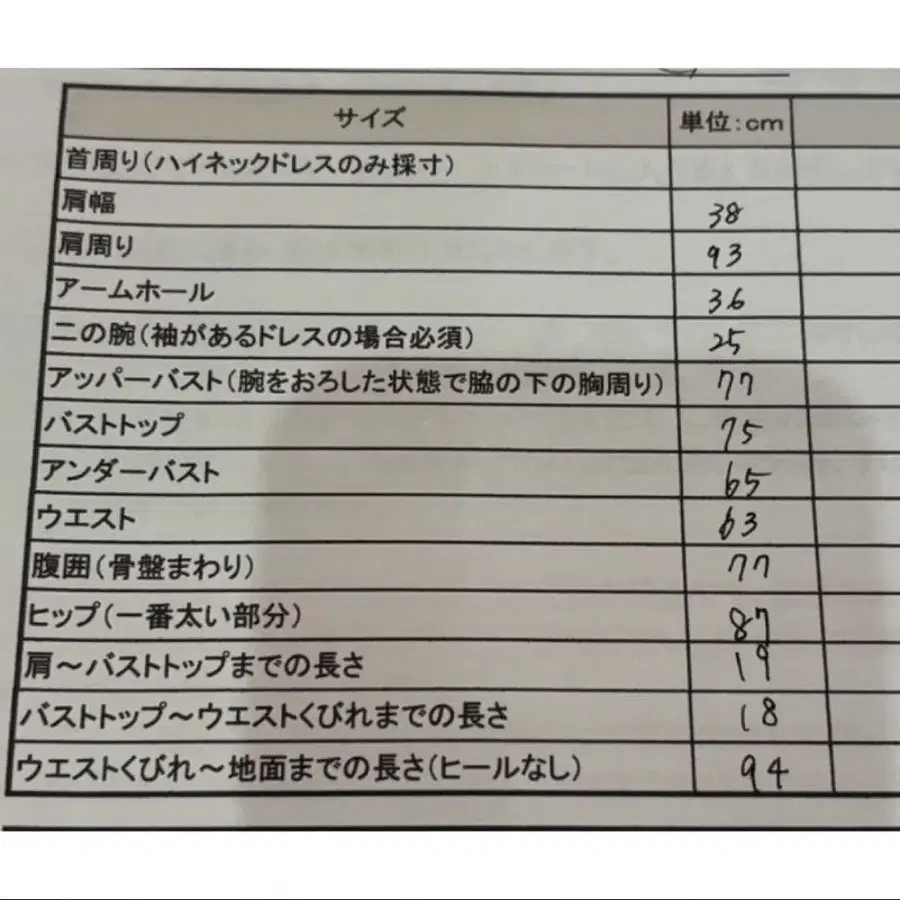 サイズ 単位:cm
首周り(ハイネックドレスのみ採寸)
肩幅 38
肩周り 93
アームホール 36
二の腕(袖があるドレスの場合必須) 25
アッパーバスト(腕をおろした状態で脇の下の胸周り) 77
バストトップ 75
アンダーバスト 65
ウエスト 63
腹囲(骨盤まわり) 77
ヒップ(一番太い部分) 87
肩~バストトップまでの長さ 19
バストトップ~ウエストくびれまでの長さ 18
ウエストくびれ~地面までの長さ(ヒールなし) 94